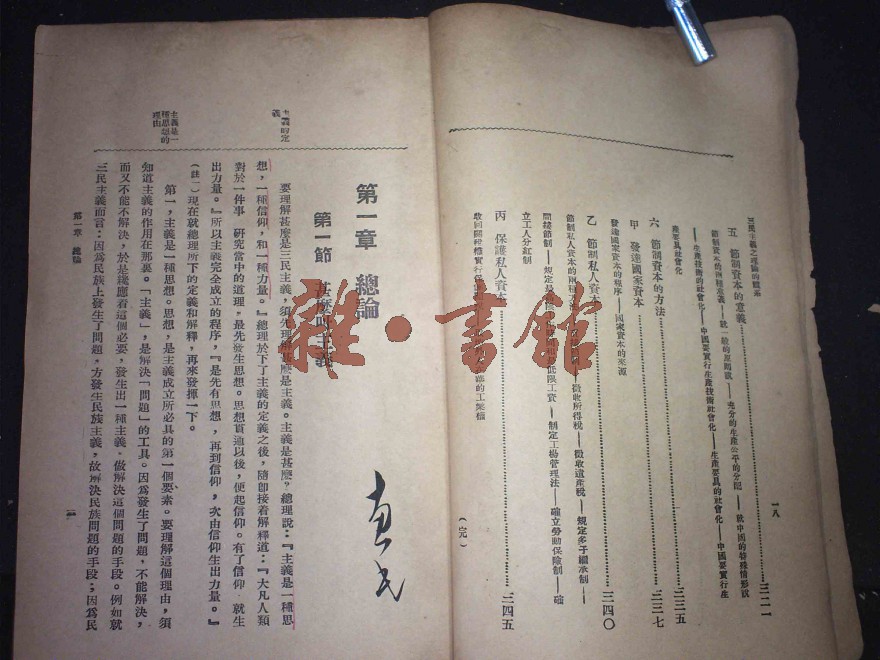 三民主義之理論的體系
一八
五 節制資本的意義……三二一
節制資本的兩種意義——就一般的原則說——充分的生產公平的分配——就中國的特殊情形說
——生產技術的社會化——中國要實行生產技術社會化——生產要具的社會化——中國要實行生
產要具社會化
六 節制資本的方法……三三五
甲 發達國家資本……三三七
發達國家資本的程序——國家資本的來源
乙 節制私人資本……三四〇
節制私人資本的兩種
徵收所得稅——徵收遺產稅——規定多子繼承制——
間接節制——規定
最低限工資——制定工場管理法——確立勞動保險制——確
立工人分紅制
丙 保護私人資本……三四五
收回關稅權實行保
的工業權
(完)
第一章 總論
第一節 甚麼叫主義
主義的定義
要理解甚麼是三民主義,須先理解甚麼是主義。主義是甚麼?總理說:『主義是一種思
想,一種信仰,和一種力量。』總理於下了主義的定義之後,隨卽接着解釋道:『大凡人類
對於一件事 研究當中的道理,最先發生思想。思想貫通以後,便起信仰。有了信仰 就生
出力量。』所以主義完全成立的程序,『是先有思想,再到信仰,次由信仰生出力量。』
(註一)現在就總理所下的定義和解釋,再來發揮一下。
主義是一種思想的理由
第一,主義是一種思想。思想,是主義成立所必具的第一個要素。要理解這個理由,須
知道主義的作用在那裏。「主義」,是解決「問題」的工具。因爲發生了問題,不能解決,
而又不能不解決,於是纔應着這個必要,發生出一種主義,做解決這個問題的手段。例如就
三民主義而言:因爲民族上發生了問題,方發生民族主義,故解決民族問題的手段;因爲民
第一章 總論
一
雜·書館